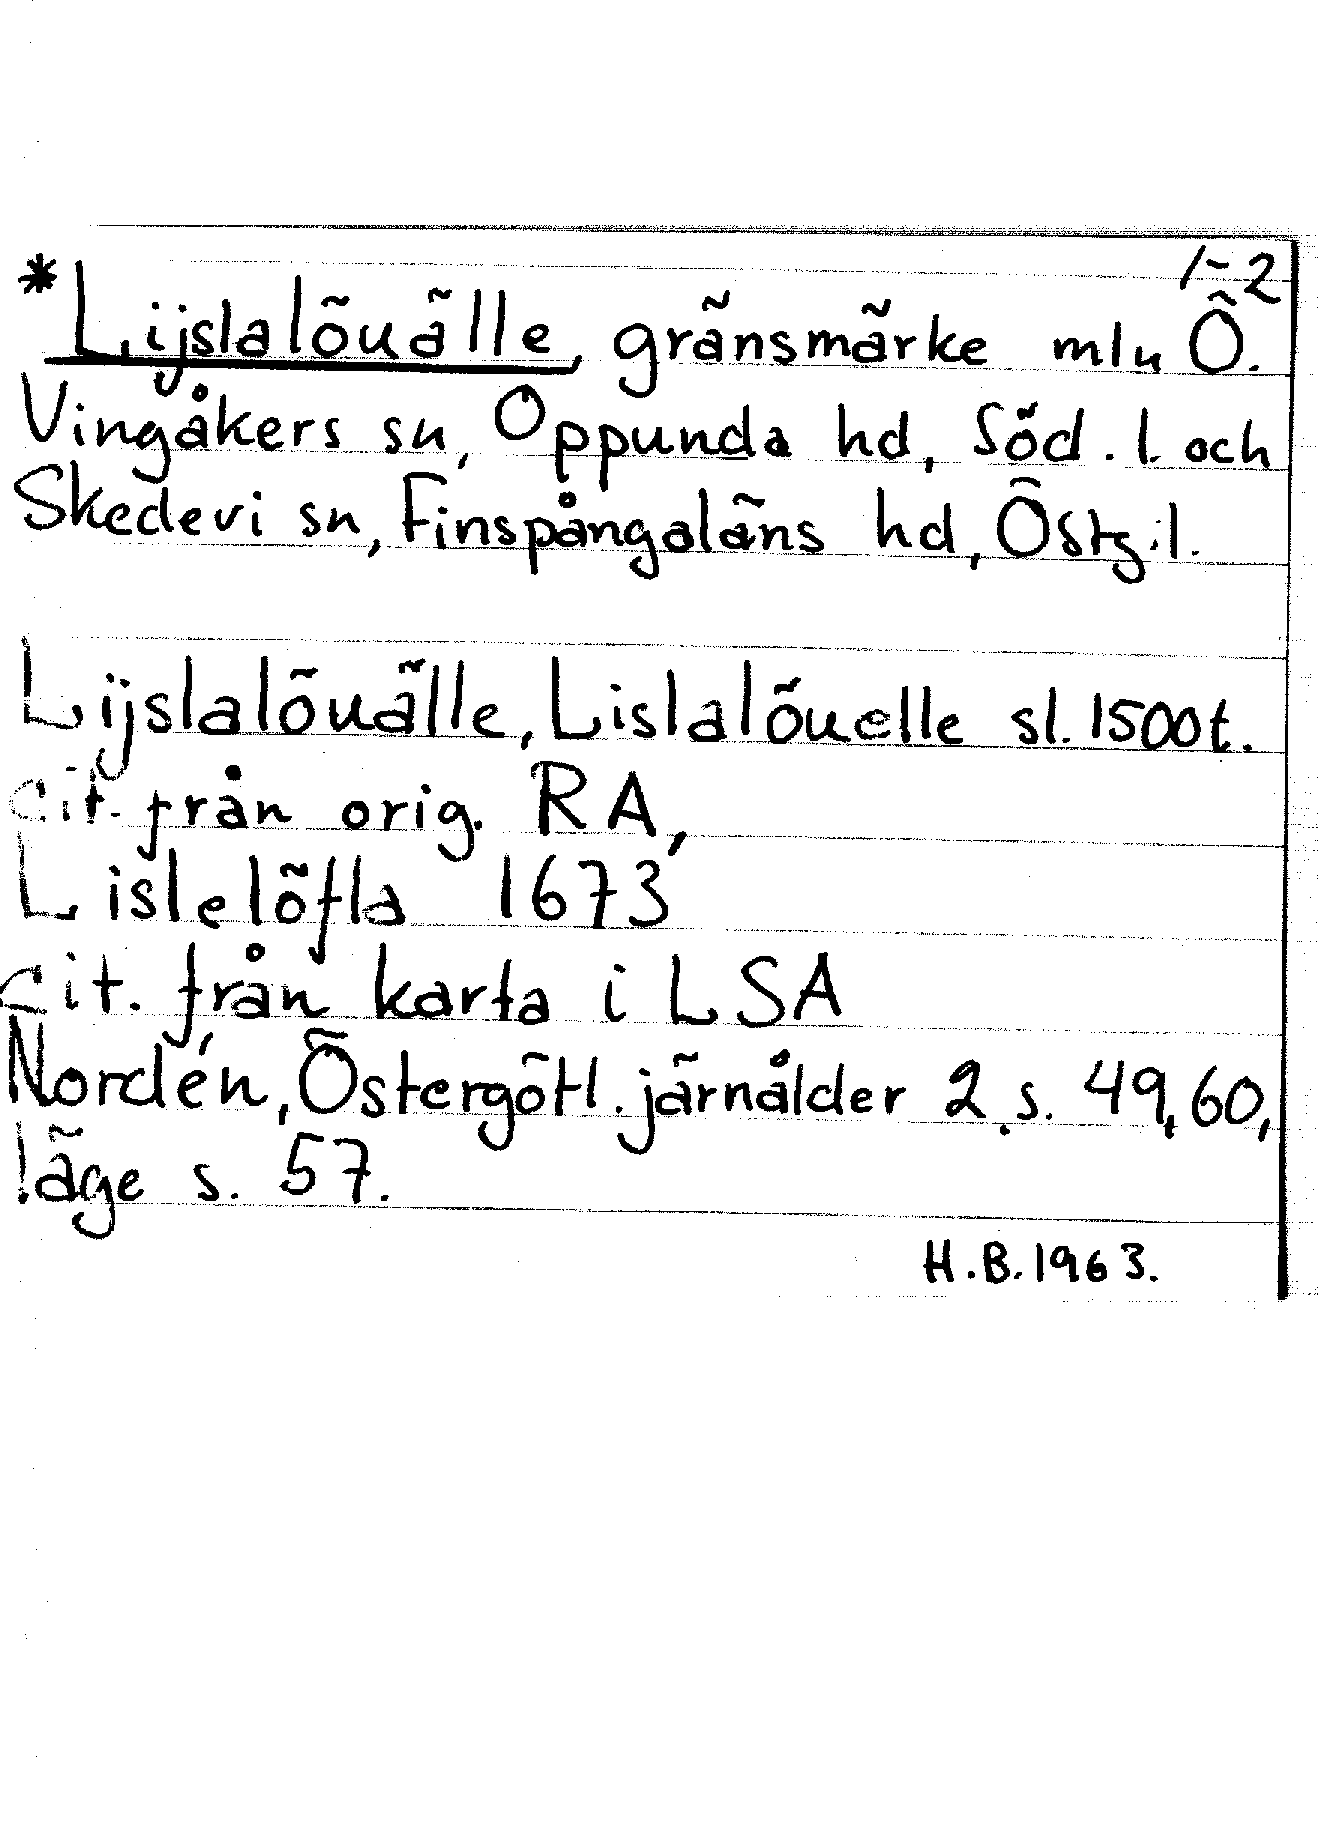 1-2
*Lijslalöuälle, gränsmärke mln Ö.
Vingåkers sn, Oppunda hd, Söd. l. och
Skedevi sn, Finspångaläns hd, Östg. l.
Lijslalöuälle, Lislalöuelle sl. 1500t.
cit. från orig. RA,
Lislelöfla 1673
cit. från karta i LSA
Nordén, Östergötl. järnålder 2 s. 49, 60,
läge s. 57.
H.B. 1963.